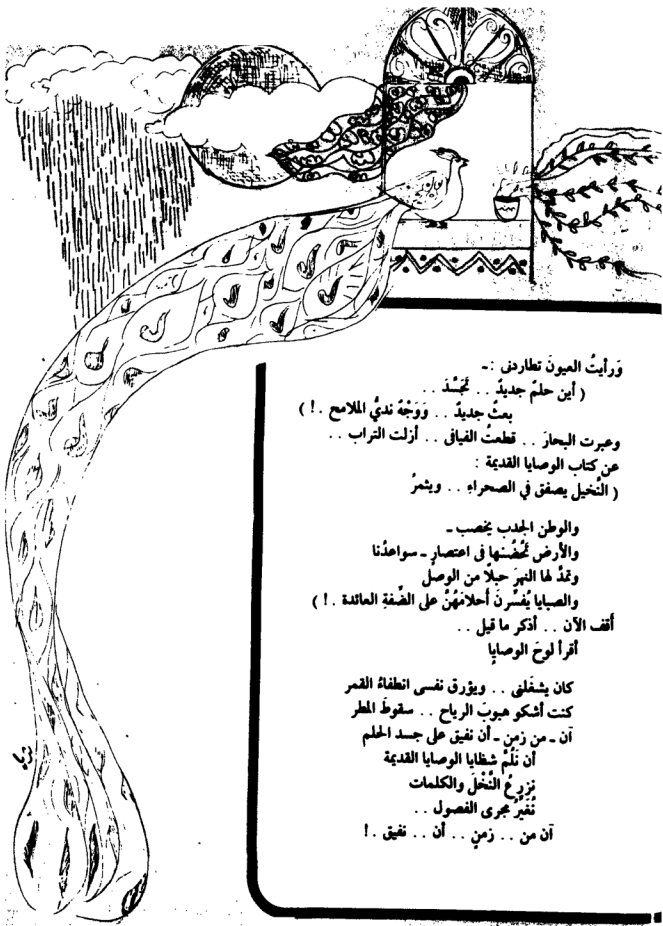 وَرأيتُ العيونَ تطاردنى :ـ
( أين حلمٌ جديدٌ . . تَجَسَّدَ . .
بعثٌ جديدٌ . . وَوَجْهٌ نديُّ الملامح . ! )
وعبرت البحارَ . . قطعتُ الفيافى . . أزلت التراب . .
عن كتاب الوصايا القديمة :
( النَّخيل يصفق في الصحراءِ . . ويثمرُ
والوطن الجدب يخصب ـ
والأرض تَحْضُنها فى اعتصارٍ ـ سواعدُنا
وتمدُّ لها النهرَ حبلًا من الوصلْ
والصبايا يُفسِّرنَ أحلامَهُنَّ على الضِّفةِ العائدة . ! )
أقف الآن . . أذكر ما قيل . .
أقرأ لوحَ الوصايا
كان يشغلنى . . ويؤرق نفسى انطفاءُ القمر
كنت أشكو هبوبَ الرياح . . سقوطَ المطر
آن ـ من زمنٍ ـ أن نفيق على جسد الحلم
أن نَلُمَّ شظايا الوصايا القديمة
نزرعُ النَّخْلَ والكلمات
نُغَيِّرُ مجرى الفصول . .
آن من . . زمنٍ . . أن . . نفيق . !